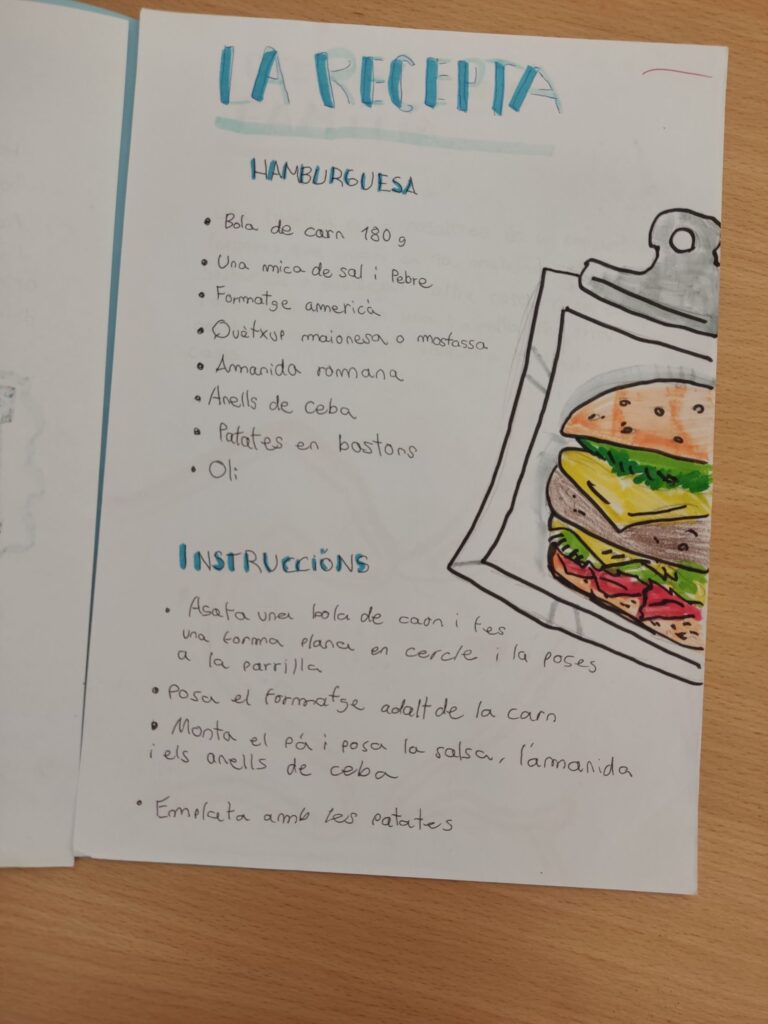 LA RECEPTA
HAMBURGUESA
• Bola de carn 180 g
• Una mica de sal i Pebre
• Formatge americà
• Quàtxup maionesa o mostassa
• Amanida romana
• Anells de ceba
• Patates en bastons
• Oli
INSTRUCCIÓNS
• Agafa una bola de carn i fes
una forma plana en cercle i la poses
a la parrilla
• Posa el formatge adalt de la carn
• Monta el pá i posa la salsa, l'amanida
i els anells de ceba
• Emplata amb les patates